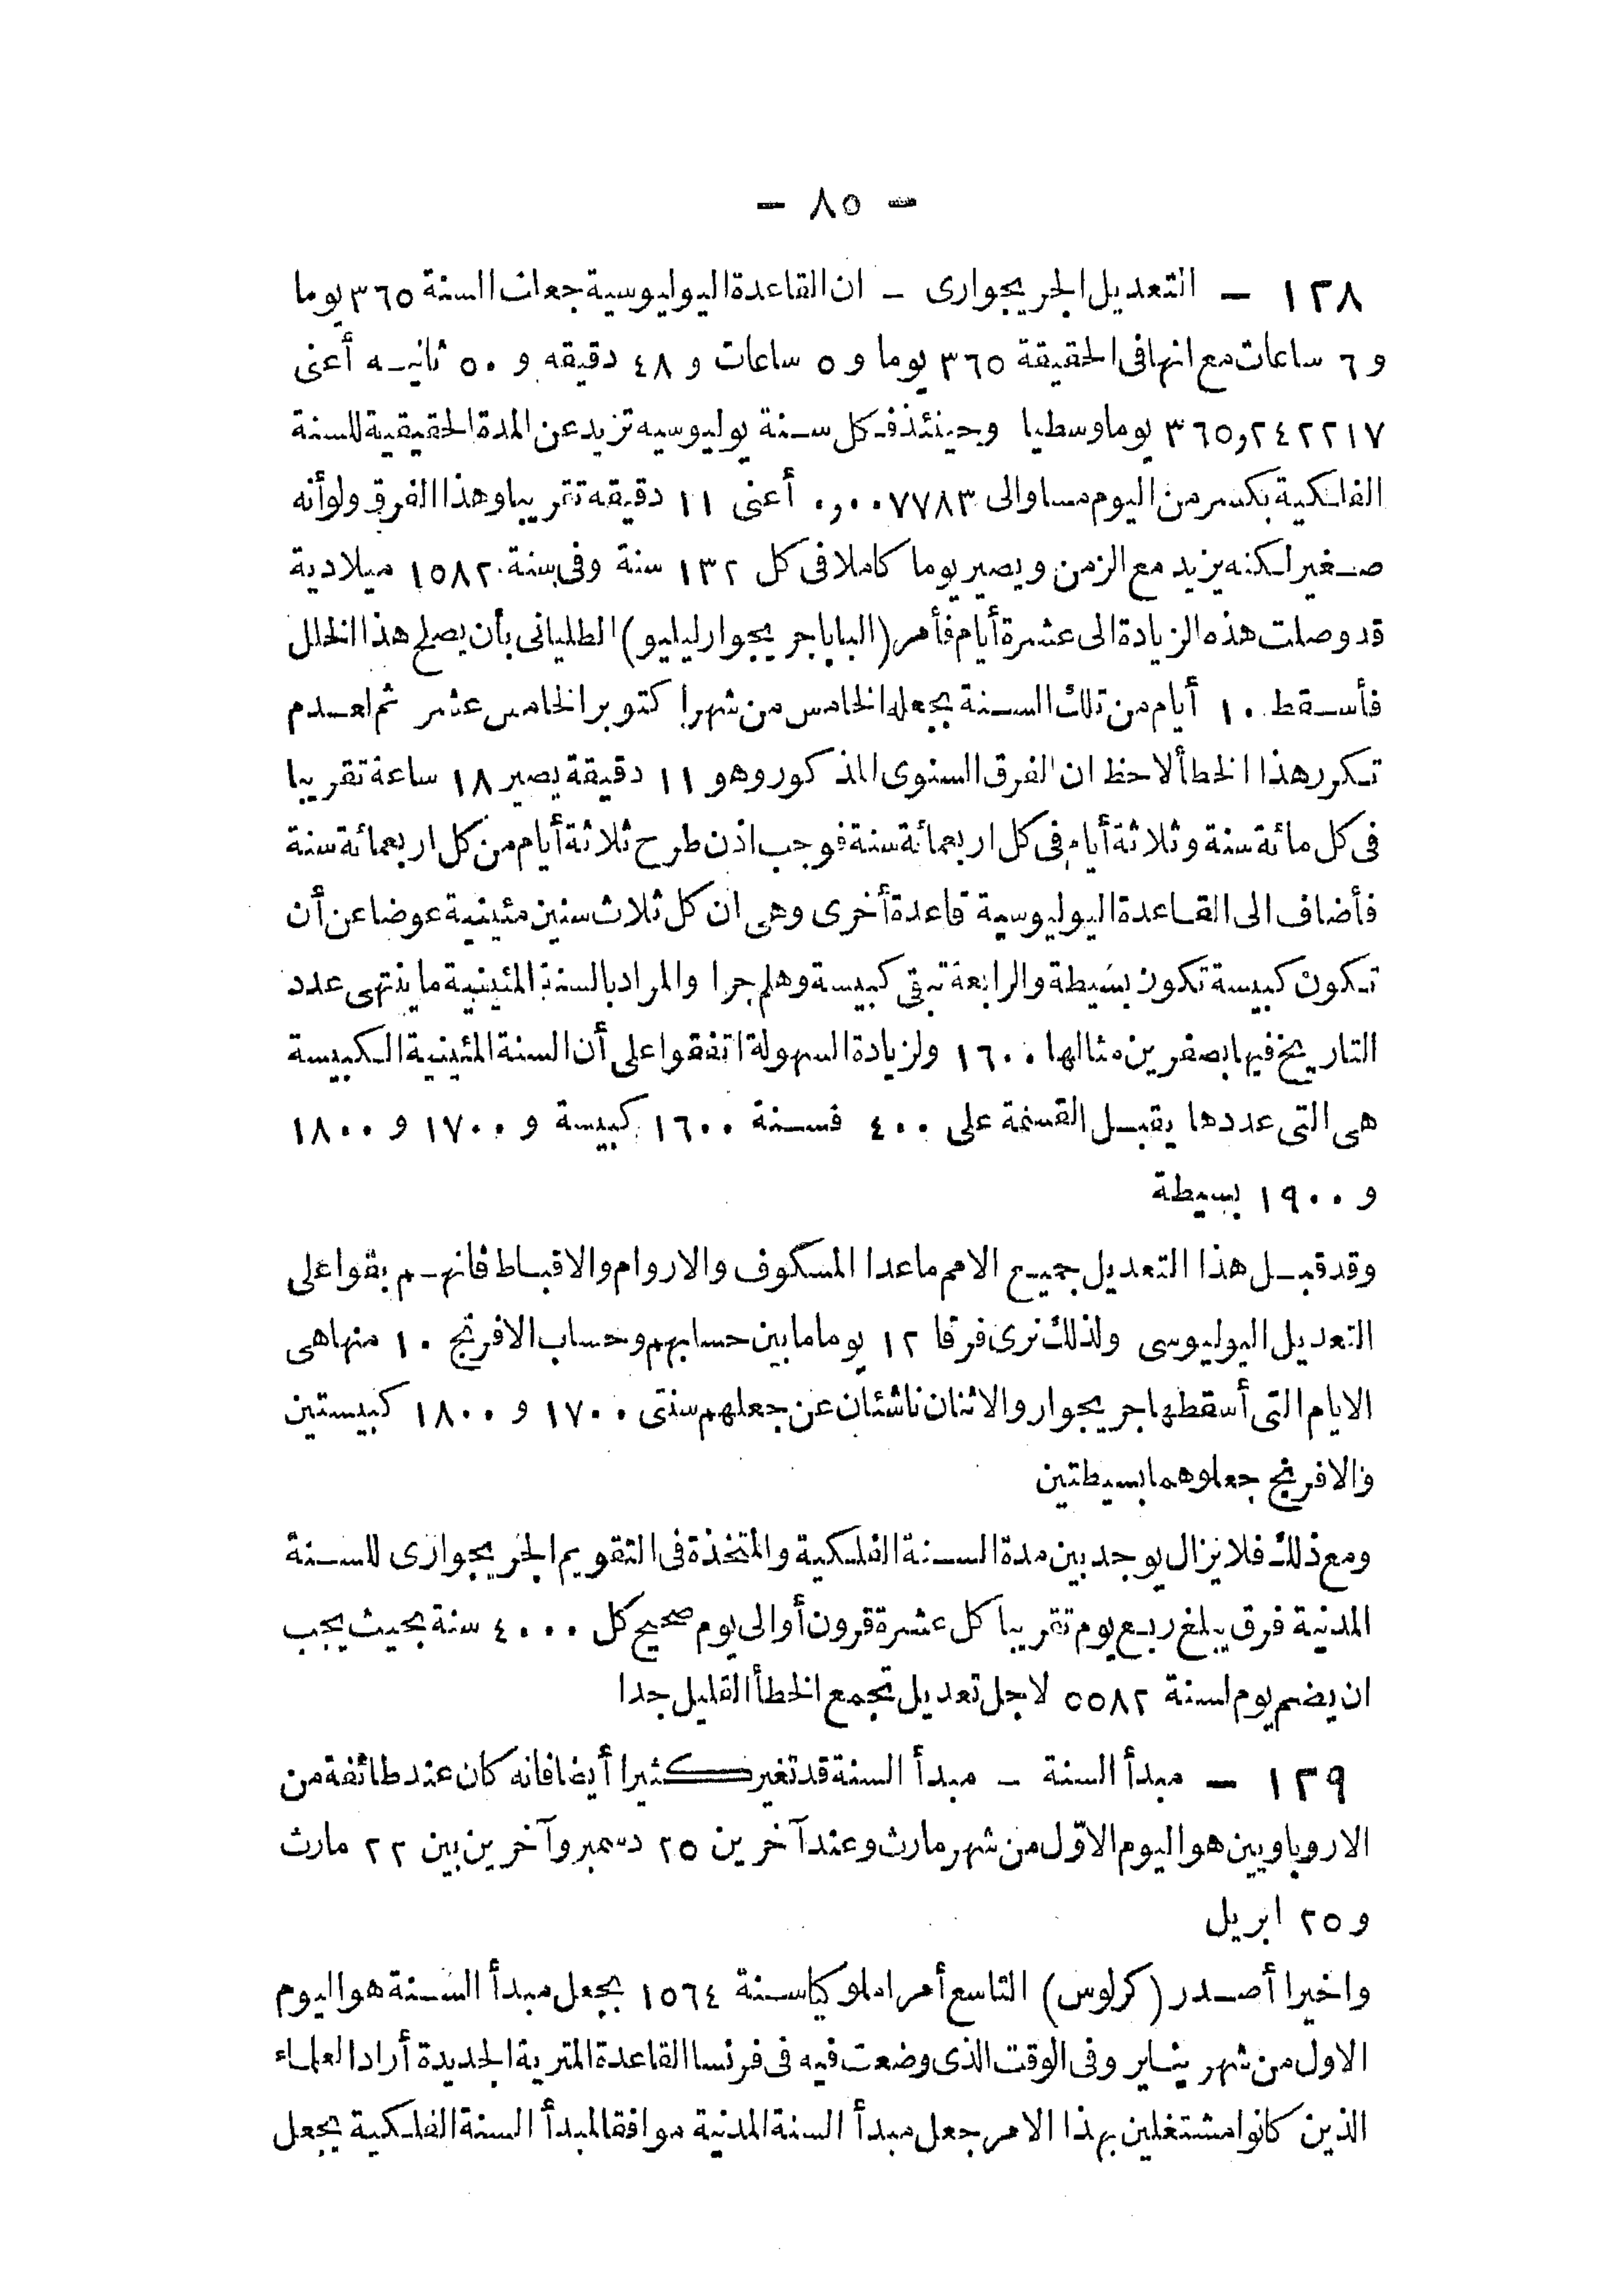 — ٨٥ —
١٢٨ — التعديل الجريجوارى — ان القاعدة اليوليوسية جعلت السنة ٣٦٥ يوما
و ٦ ساعات مع انها فى الحقيقة ٣٦٥ يوما و ٥ ساعات و ٤٨ دقيقه و ٥٠ ثانيه أعنى
٣٦٥,٢٤٢٢١٧ يوما وسطيا وحينئذ فكل سنة يوليوسيه تزيد عن المدة الحقيقية للسنة
الفلكية بكسر من اليوم مساو الى ٠,٠٠٧٧٨٣ أعنى ١١ دقيقه تقريبا وهذا الفرق ولو أنه
صغير لكنه يزيد مع الزمن ويصير يوما كاملا فى كل ١٣٢ سنة وفى سنة ١٥٨٢ ميلادية
قد وصلت هذه الزيادة الى عشرة أيام فأمر (البابا جريجوار ليليو) الطليانى بأن يصلح هذا الخلل
فأسقط ١٠ أيام من تلك السنة بجعله الخامس من شهر اكتوبر الخامس عشر ثم لعدم
تكرر هذا الخطأ لاحظ ان الفرق السنوى المذكور وهو ١١ دقيقة يصير ١٨ ساعة تقريبا
فى كل مائة سنة وثلاثة أيام فى كل اربعمائة سنة فوجب اذن طرح ثلاثة أيام من كل اربعمائة سنة
فأضاف الى القاعدة اليوليوسية قاعدة أخرى وهى ان كل ثلاث سنين مئينية عوضا عن أن
تكون كبيسة تكون بسيطة والرابعة تبقى كبيسة وهلم جرا والمراد بالسنة المئينية ما ينتهى عدد
التاريخ فيها بصفرين مثالها ١٦٠٠ ولزيادة السهولة اتفقوا على أن السنة المئينية الكبيسة
هى التى عددها يقبل القسمة على ٤٠٠ فسنة ١٦٠٠ كبيسة و ١٧٠٠ و ١٨٠٠
و ١٩٠٠ بسيطة
وقد قبل هذا التعديل جميع الامم ماعدا المسكوف والاروام والاقباط فانهم بقوا على
التعديل اليوليوسى ولذلك نرى فرقا ١٢ يوما ما بين حسابهم وحساب الافرنج ١٠ منها هى
الايام التى أسقطها جريجوار والاثنان ناشئان عن جعلهم سنتى ١٧٠٠ و ١٨٠٠ كبيستين
والافرنج جعلوهما بسيطتين
ومع ذلك فلا يزال يوجد بين مدة السنة الفلكية والمتخذة فى التقويم الجريجوارى للسنة
المدنية فرق يبلغ ربع يوم تقريبا كل عشرة قرون أو الى يوم صحيح كل ٤٠٠٠ سنة بحيث يجب
ان يضم يوم لسنة ٥٥٨٢ لاجل تعديل تجمع الخطأ القليل جدا
١٢٩ — مبدأ السنة — مبدأ السنة قد تغير كثيرا أيضا فانه كان عند طائفة من
الاروباويين هو اليوم الاوّل من شهر مارث وعند آخرين ٢٥ دسمبر وآخرين بين ٢٢ مارث
و ٢٥ ابريل
واخيرا أصدر (كرلوس) التاسع أمرا ملوكيا سنة ١٥٦٤ بجعل مبدأ السنة هو اليوم
الاول من شهر يناير وفى الوقت الذى وضعت فيه فى فرنسا القاعدة المترية الجديدة أراد العلماء
الذين كانوا مشتغلين بهذا الامر جعل مبدأ السنة المدنية موافقا لمبدأ السنة الفلكية بجعل